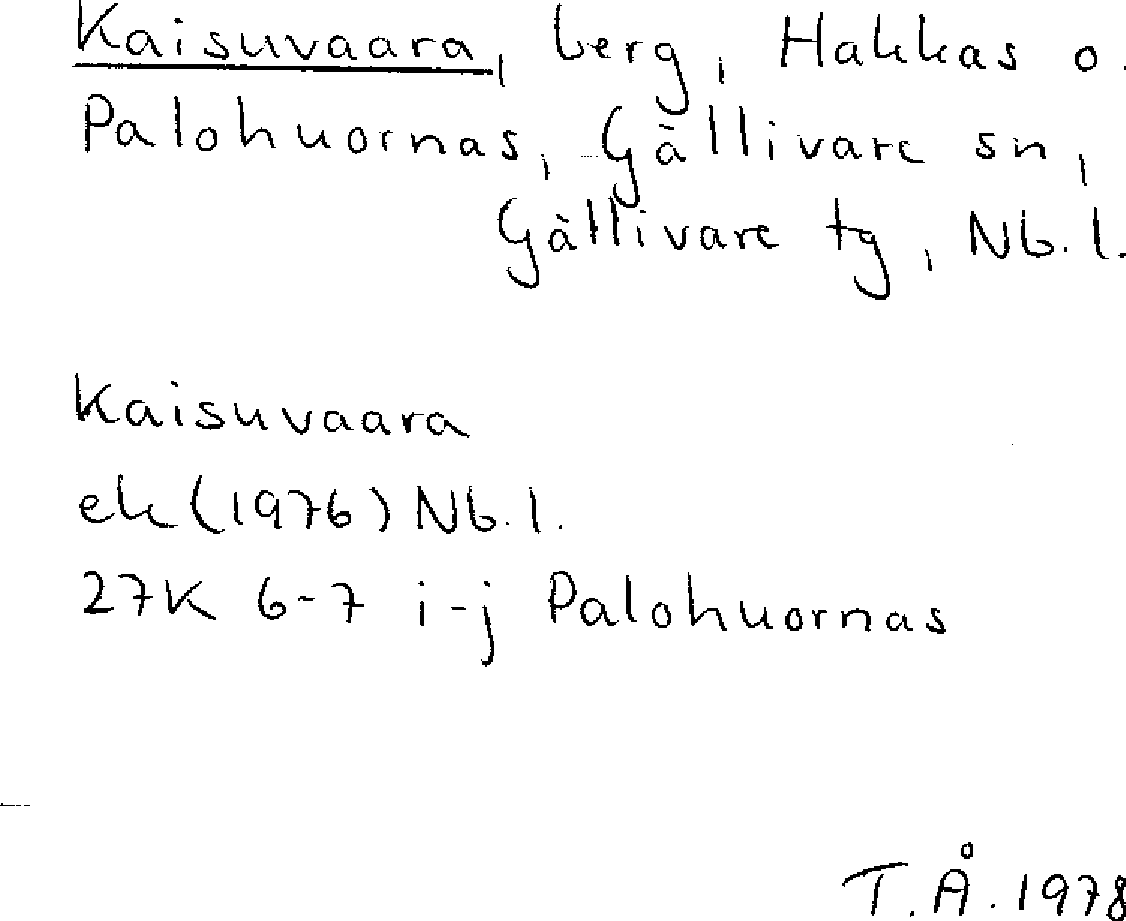 Kaisuvaara, berg, Hakkas o.
Palohuornas, Gällivare sn,
Gällivare tg, Nb. l.
Kaisuvaara
ek (1976) Nb. l.
27K 6-7 i-j Palohuornas
T. Å. 1978